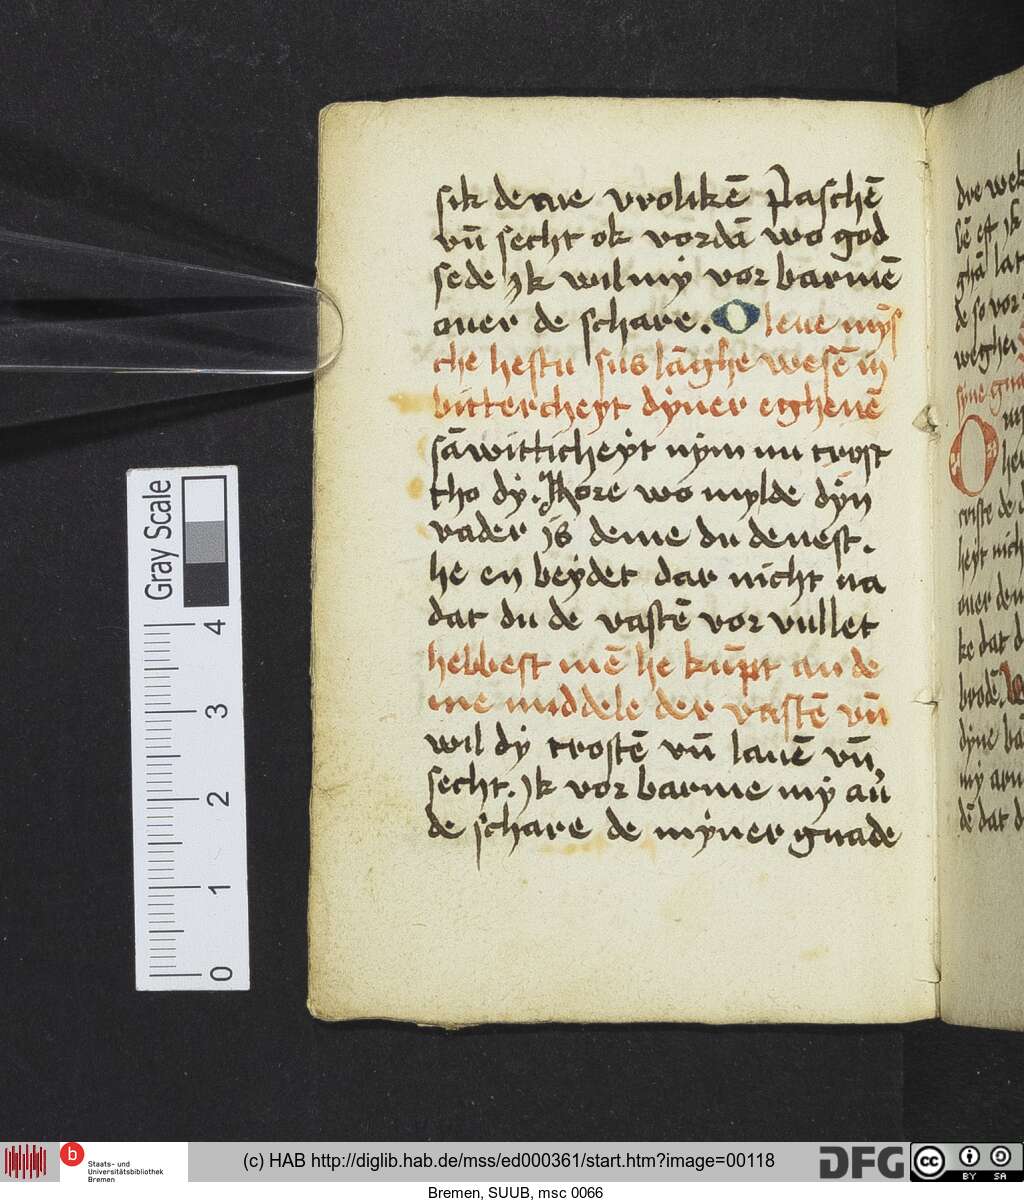 sik deme vrolikē Paschē
vn̄ secht ok vordā wo god
sede Jk wil mẏ vor barmē
ouer de schare. O leue mÿs
che hestu sus lāghe wesē in
bittercheyt dẏner eghenē
sāwitticheẏt nẏm nu trost
tho dẏ. Hore wo mylde dẏn
vader is deme du denest.
he en beẏdet dar nicht na
dat du de vastē vor vullet
hebbest mē he kūpt an de
me middele der vastē vn̄
wil dẏ trostē vn̄ lauē vn̄
secht. Jk vor barme mẏ au̓
de schare de mẏner gnade
dre wek
bē eft ik
ghā lat
de so vor
weghen
syne gna
O
criste de
heyt nich
ouer den
ke dat d
brodē.
dyne ba
my arm
dē dat d
Gray Scale
4
3
2
1
0
b Staats- und
Universitätsbibliothek
Bremen
(c) HAB http://diglib.hab.de/mss/ed000361/start.htm?image=00118
DFG
cc BY SA
Bremen, SUUB, msc 0066